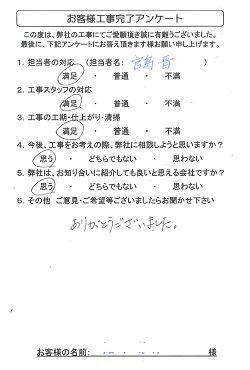 お客様工事完了アンケート
この度は、弊社の工事にてご愛顧頂き誠に有難うございました。
最後に、下記アンケートにお答え頂きます様お願い申し上げます。
1. 担当者の対応 (担当者名: 宮嶋 晋)
満足 ・ 普通 ・ 不満
2. 工事スタッフの対応
満足 ・ 普通 ・ 不満
3. 工事の工期・仕上がり・清掃
満足 ・ 普通 ・ 不満
4. 今後、工事をお考えの際、弊社に相談しようと思いますか?
思う ・ どちらでもない ・ 思わない
5. 弊社は、お知り合いに紹介しても良いと思える会社ですか?
思う ・ どちらでもない ・ 思わない
6. その他 ご意見・ご希望等ございましたらお聞かせ下さい
ありがとうございました。
お客様の名前: 様